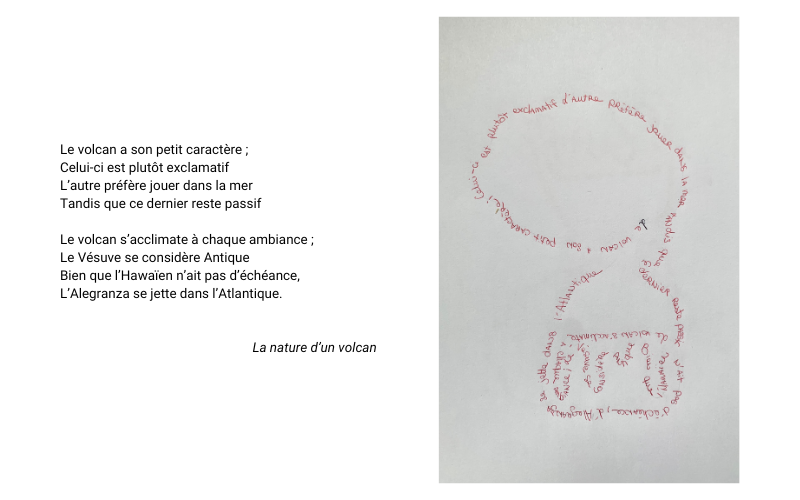 Le volcan a son petit caractère ;
Celui-ci est plutôt exclamatif
L’autre préfère jouer dans la mer
Tandis que ce dernier reste passif
Le volcan s’acclimate à chaque ambiance ;
Le Vésuve se considère Antique
Bien que l’Hawaïen n’ait pas d’échéance,
L’Alegranza se jette dans l’Atlantique.
La nature d’un volcan
Le volcan a son petit caractère ; Celui-ci est plutôt exclamatif d'autre préfère jouer dans la mer Tandis que ce dernier reste passif
Le volcan s'acclimate à chaque
n'ait pas d'échéance, d'Alegranza se jette dans l'Atlantique